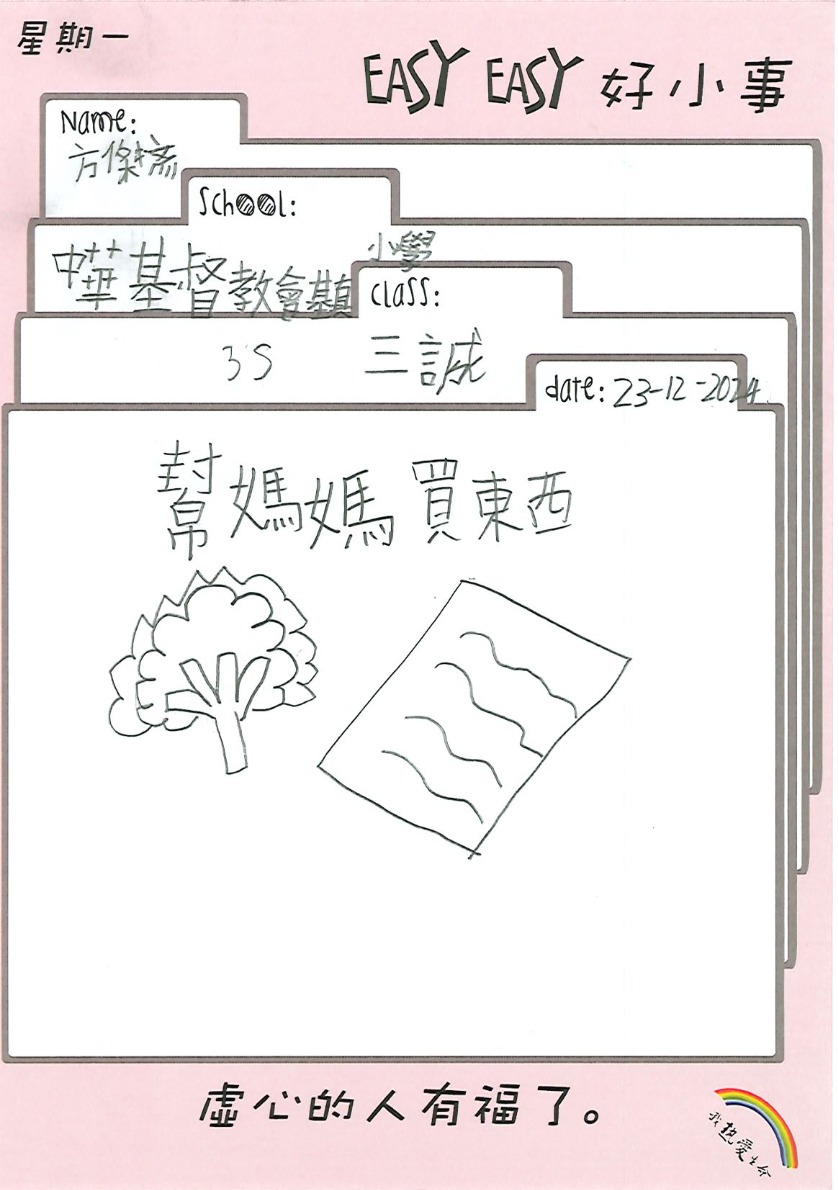 星期一
EASY EASY 好小事
Name:
方傑
School:
中華基督教會基真
小學
Class:
3S 三誠
date: 23-12-2024
幫媽媽買東西
虛心的人有福了。
我熱愛生命